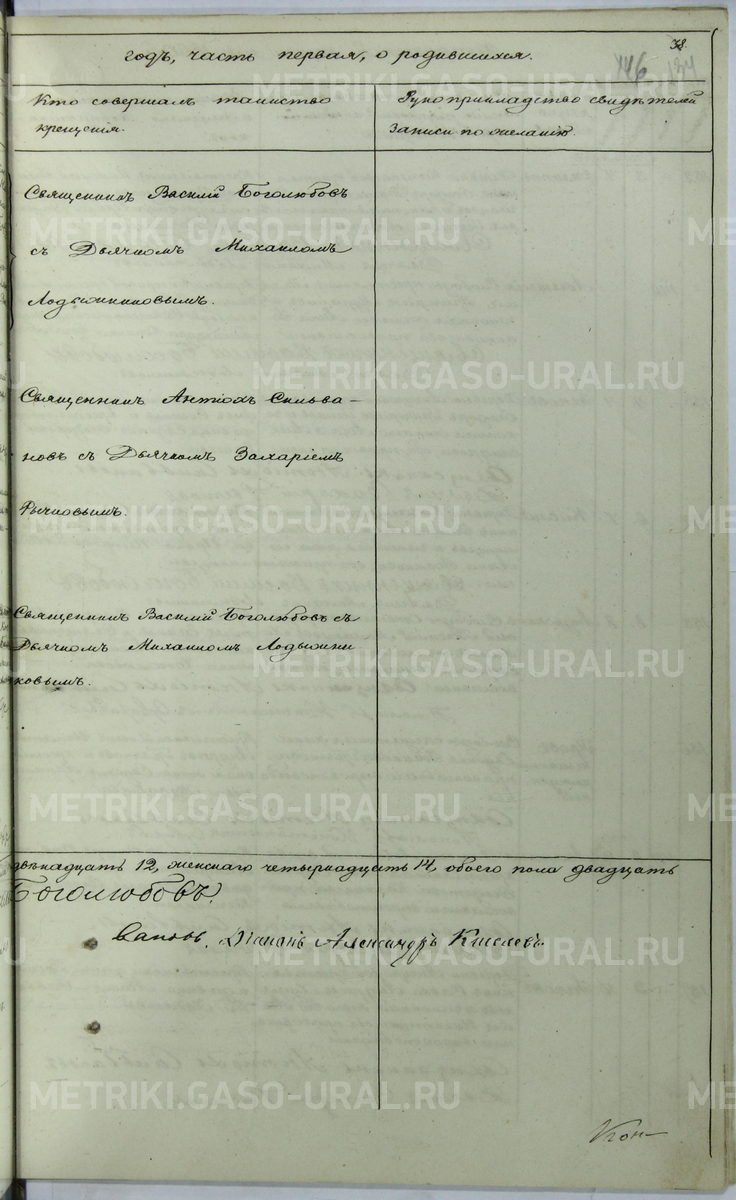 38.
годъ, часть первая, о родившихся.
146 134
Кто совершалъ таинство
крещенія.
Рукоприкладство свидѣтелей
записи по желанію.
Священникъ Василій Боголюбовъ
съ Дьячкомъ Михаиломъ
Лодыжниковымъ.
Священникъ Антіохъ Сильва-
новъ съ Дьячкомъ Захаріемъ
Рычковымъ.
Священникъ Василій Боголюбовъ съ
Дьячкомъ Михаиломъ Лодыжни
ковымъ.
двѣнадцать 12, женскаго четырнадцать 14, обоего пола двадцать
Боголюбовъ.
Діаконъ Александръ Киселевъ.
METRIKI.GASO-URAL.RU